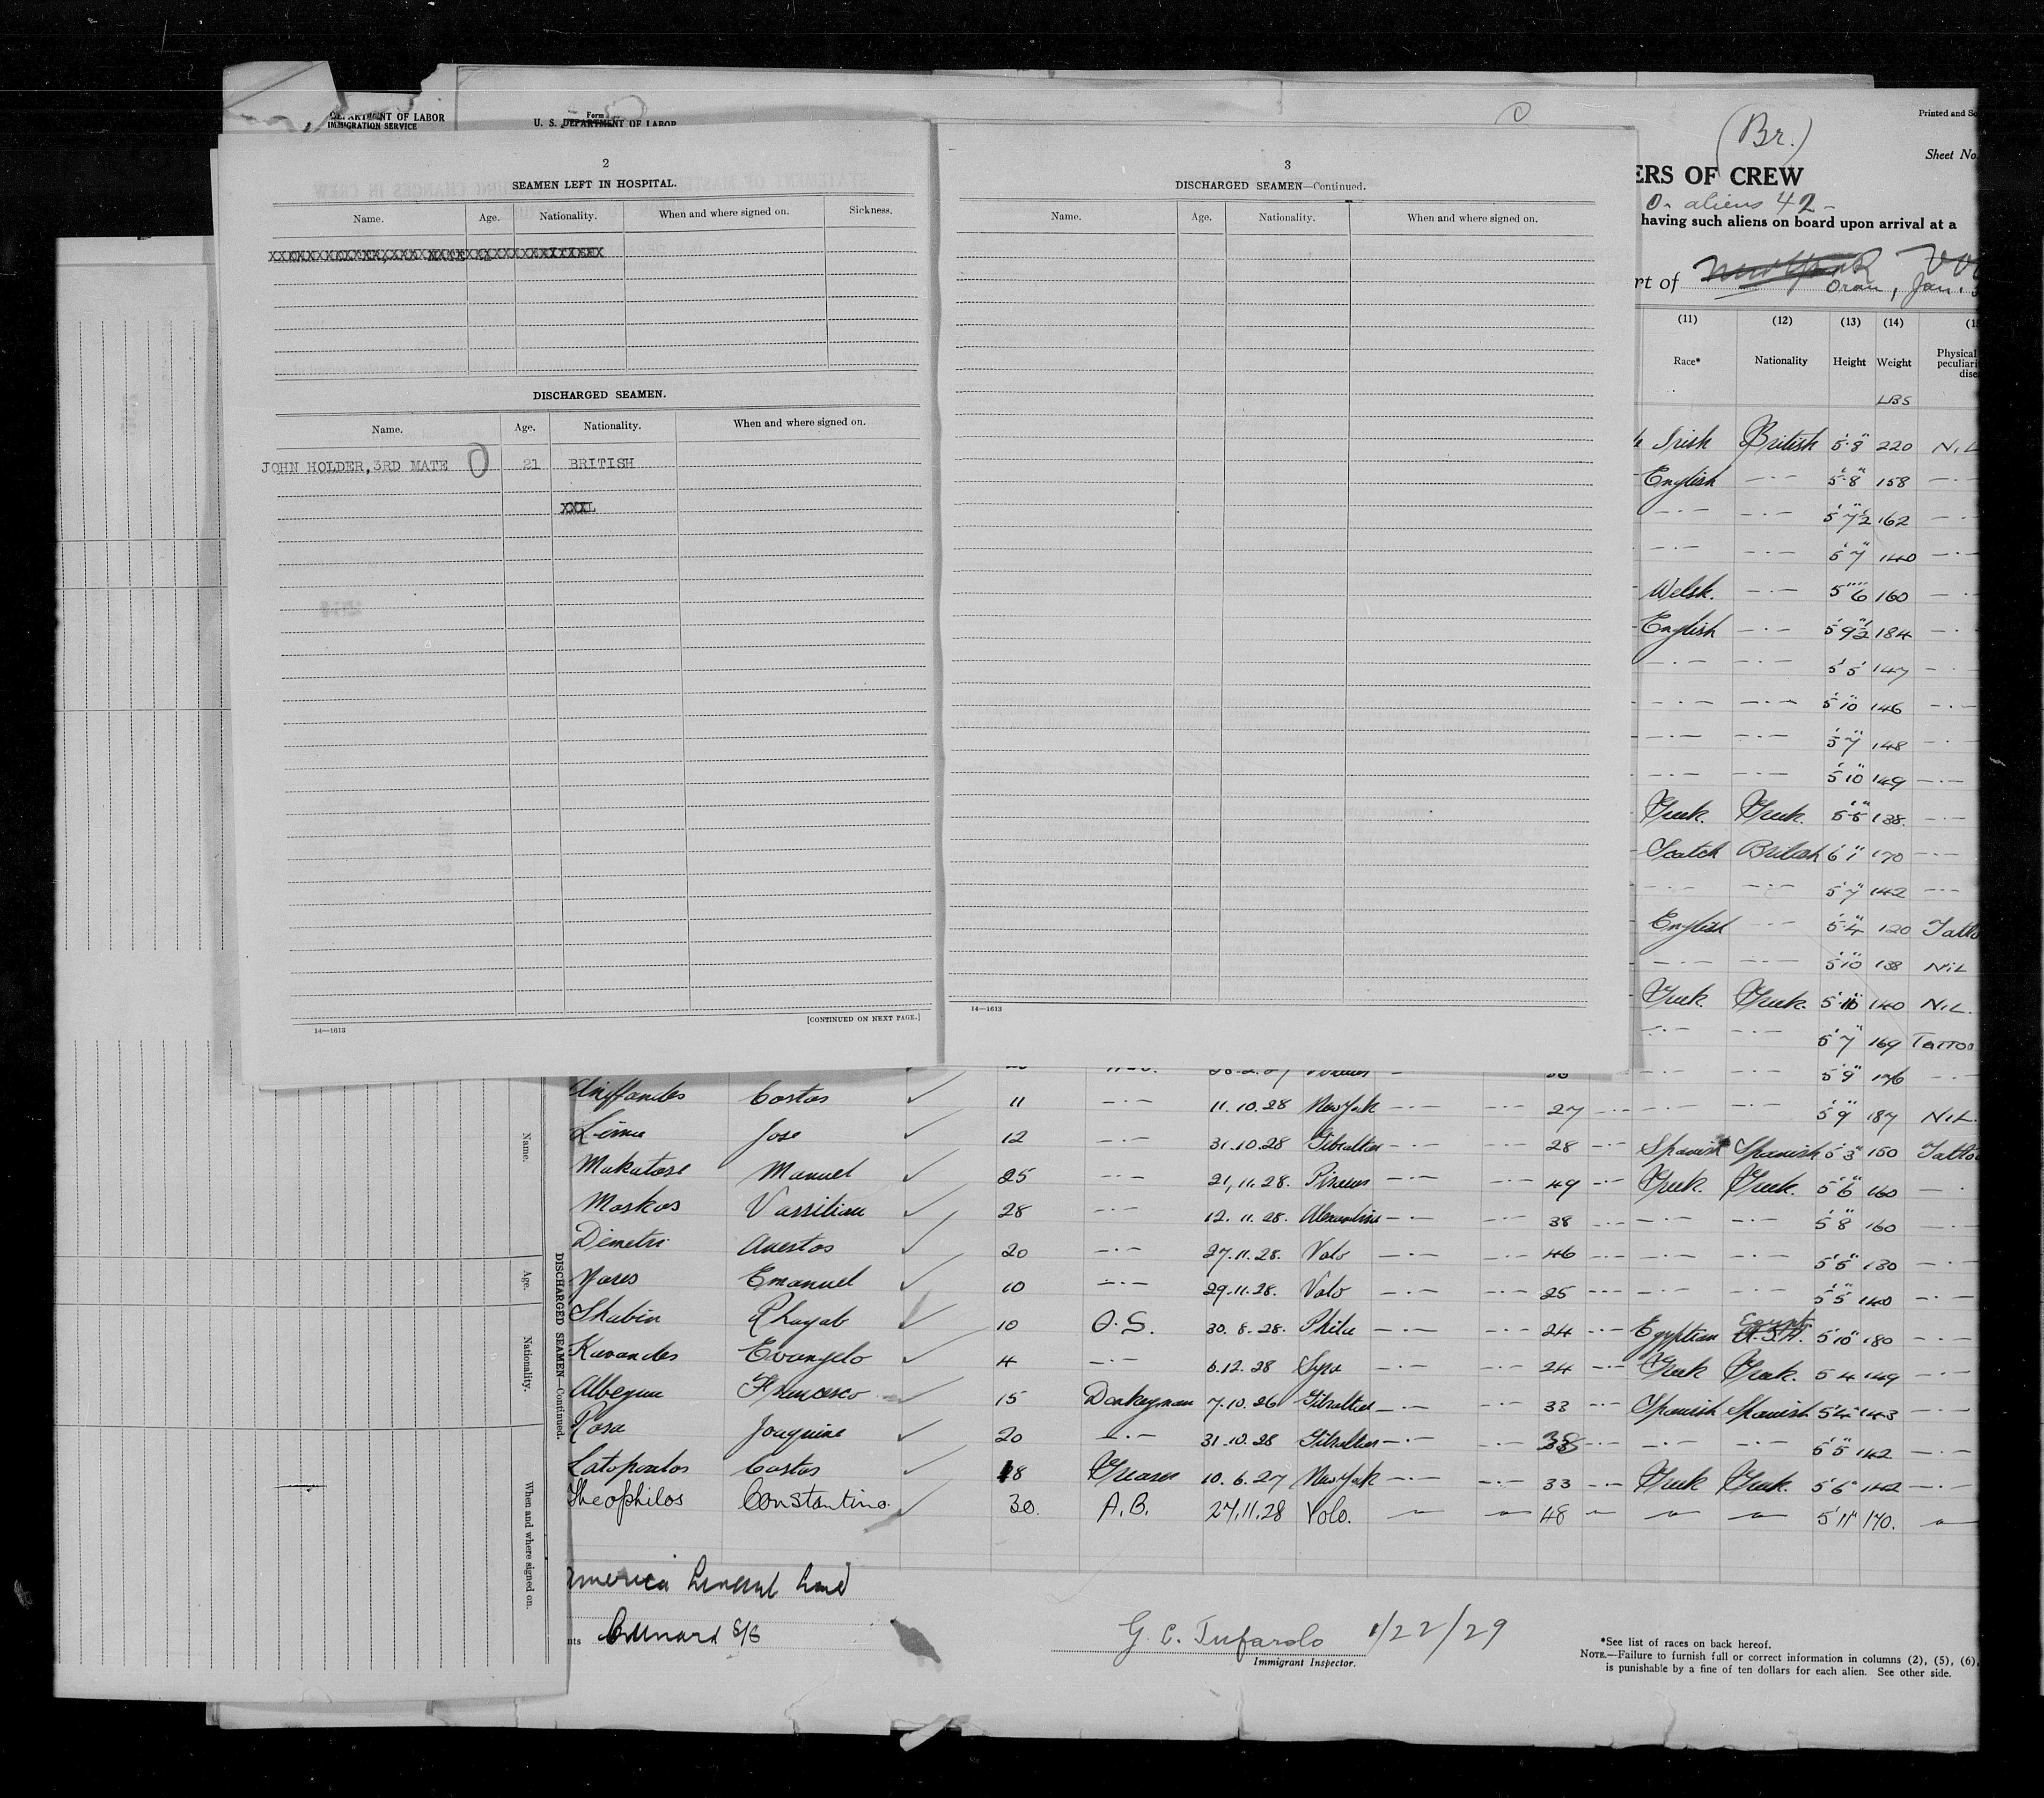 DEPARTMENT OF LABOR
IMMIGRATION SERVICE
Form
U. S. DEPARTMENT OF LABOR
2
SEAMEN LEFT IN HOSPITAL.
Name. Age. Nationality. When and where signed on. Sickness.
DISCHARGED SEAMEN.
Name. Age. Nationality. When and where signed on.
JOHN HOLDER, 3RD MATE 0 21 BRITISH
XXXL
14—1613 [CONTINUED ON NEXT PAGE.]
3
DISCHARGED SEAMEN—Continued.
Name. Age. Nationality. When and where signed on.
14—1613
(Br.)
Printed and So
Sheet No.
ERS OF CREW
0- aliens 42 -
having such aliens on board upon arrival at a
rt of New York
Oran, Jan.
(11) (12) (13) (14)
Race* Nationality Height Weight Physical peculiari dise
LBS
Irish British 5' 8" 220 NiL
English —·— 5' 8" 158 —·—
—·— —·— 5' 7½" 162 —·—
—·— —·— 5' 7" 140 —·—
Welsh. —·— 5' 6" 160 —·—
English —·— 5' 9½" 184 —·—
—·— —·— 5' 5" 147 —·—
—·— —·— 5' 10" 146 —·—
—·— —·— 5' 7" 148 —·—
—·— —·— 5' 10" 149 —·—
Greek. Greek. 5' 5" 138. —·—
Scotch British 6' 1" 170 —·—
—·— —·— 5' 7" 142 —·—
English —·— 5' 4" 120 Tatto
—·— —·— 5' 10" 138 NiL
Greek. Greek. 5' 10" 140 NiL.
—·— —·— 5' 7" 169 Tattoo
—·— —·— 5' 9" 176 —·—
Costas ✓ 11 —·— 11.10.28 New York —·— —·— 27 —·— —·— —·— 5' 9" 187 NiL.
Jose ✓ 12 —·— 31.10.28 Gibraltar —·— —·— 28 —·— Spanish Spanish 5' 3" 150 Tattoo
Makatose Manuel ✓ 25 —·— 21.11.28. Piraeus —·— —·— 49 —·— Greek. Greek. 5' 6" 160 —·—
Moskos Vassiliau ✓ 28 —·— 12.11.28. Alexandria —·— —·— 38 —·— —·— —·— 5' 8" 160 —·—
Dimetri Anestos ✓ 20 —·— 27.11.28. Volo —·— —·— 46 —·— —·— —·— 5' 5" 130 —·—
Yares Emanuel ✓ 10 —·— 29.11.28. Volo —·— —·— 25 —·— —·— —·— 5' 5" 140 —·—
Shabin Rhayab ✓ 10 O.S. 30.8.28. Phila —·— —·— 24 —·— Egyptian Egypt. U.S.A. 5' 10" 180 —·—
Kavandes Evangelo ✓ 4 —·— 6.12.28 Syra —·— —·— 24 —·— Greek Greek. 5' 4" 149 —·—
Francesco ✓ 15 Donkeyman 7.10.26 Gibraltar —·— —·— 33 —·— Spanish Spanish 5' 4" 143 —·—
Rosa Joaquine ✓ 20 —·— 31.10.28 Gibraltar —·— —·— 38 —·— —·— —·— 5' 5" 142 —·—
Latopoulos Costas ✓ 18 Greaser 10.6.27 New York —·— —·— 33 —·— Greek Greek. 5' 6" 142 —·—
Theophilos Constantino. ✓ 30. A.B. 27.11.28 Volo. 48 5' 11" 170.
America
nts Cunard S/S
G. C. Tufarolo 1/22/29
Immigrant Inspector.
*See list of races on back hereof.
NOTE.—Failure to furnish full or correct information in columns (2), (5), (6),
is punishable by a fine of ten dollars for each alien. See other side.
DISCHARGED SEAMEN—Continued.
Name. Age. Nationality. When and where signed on.